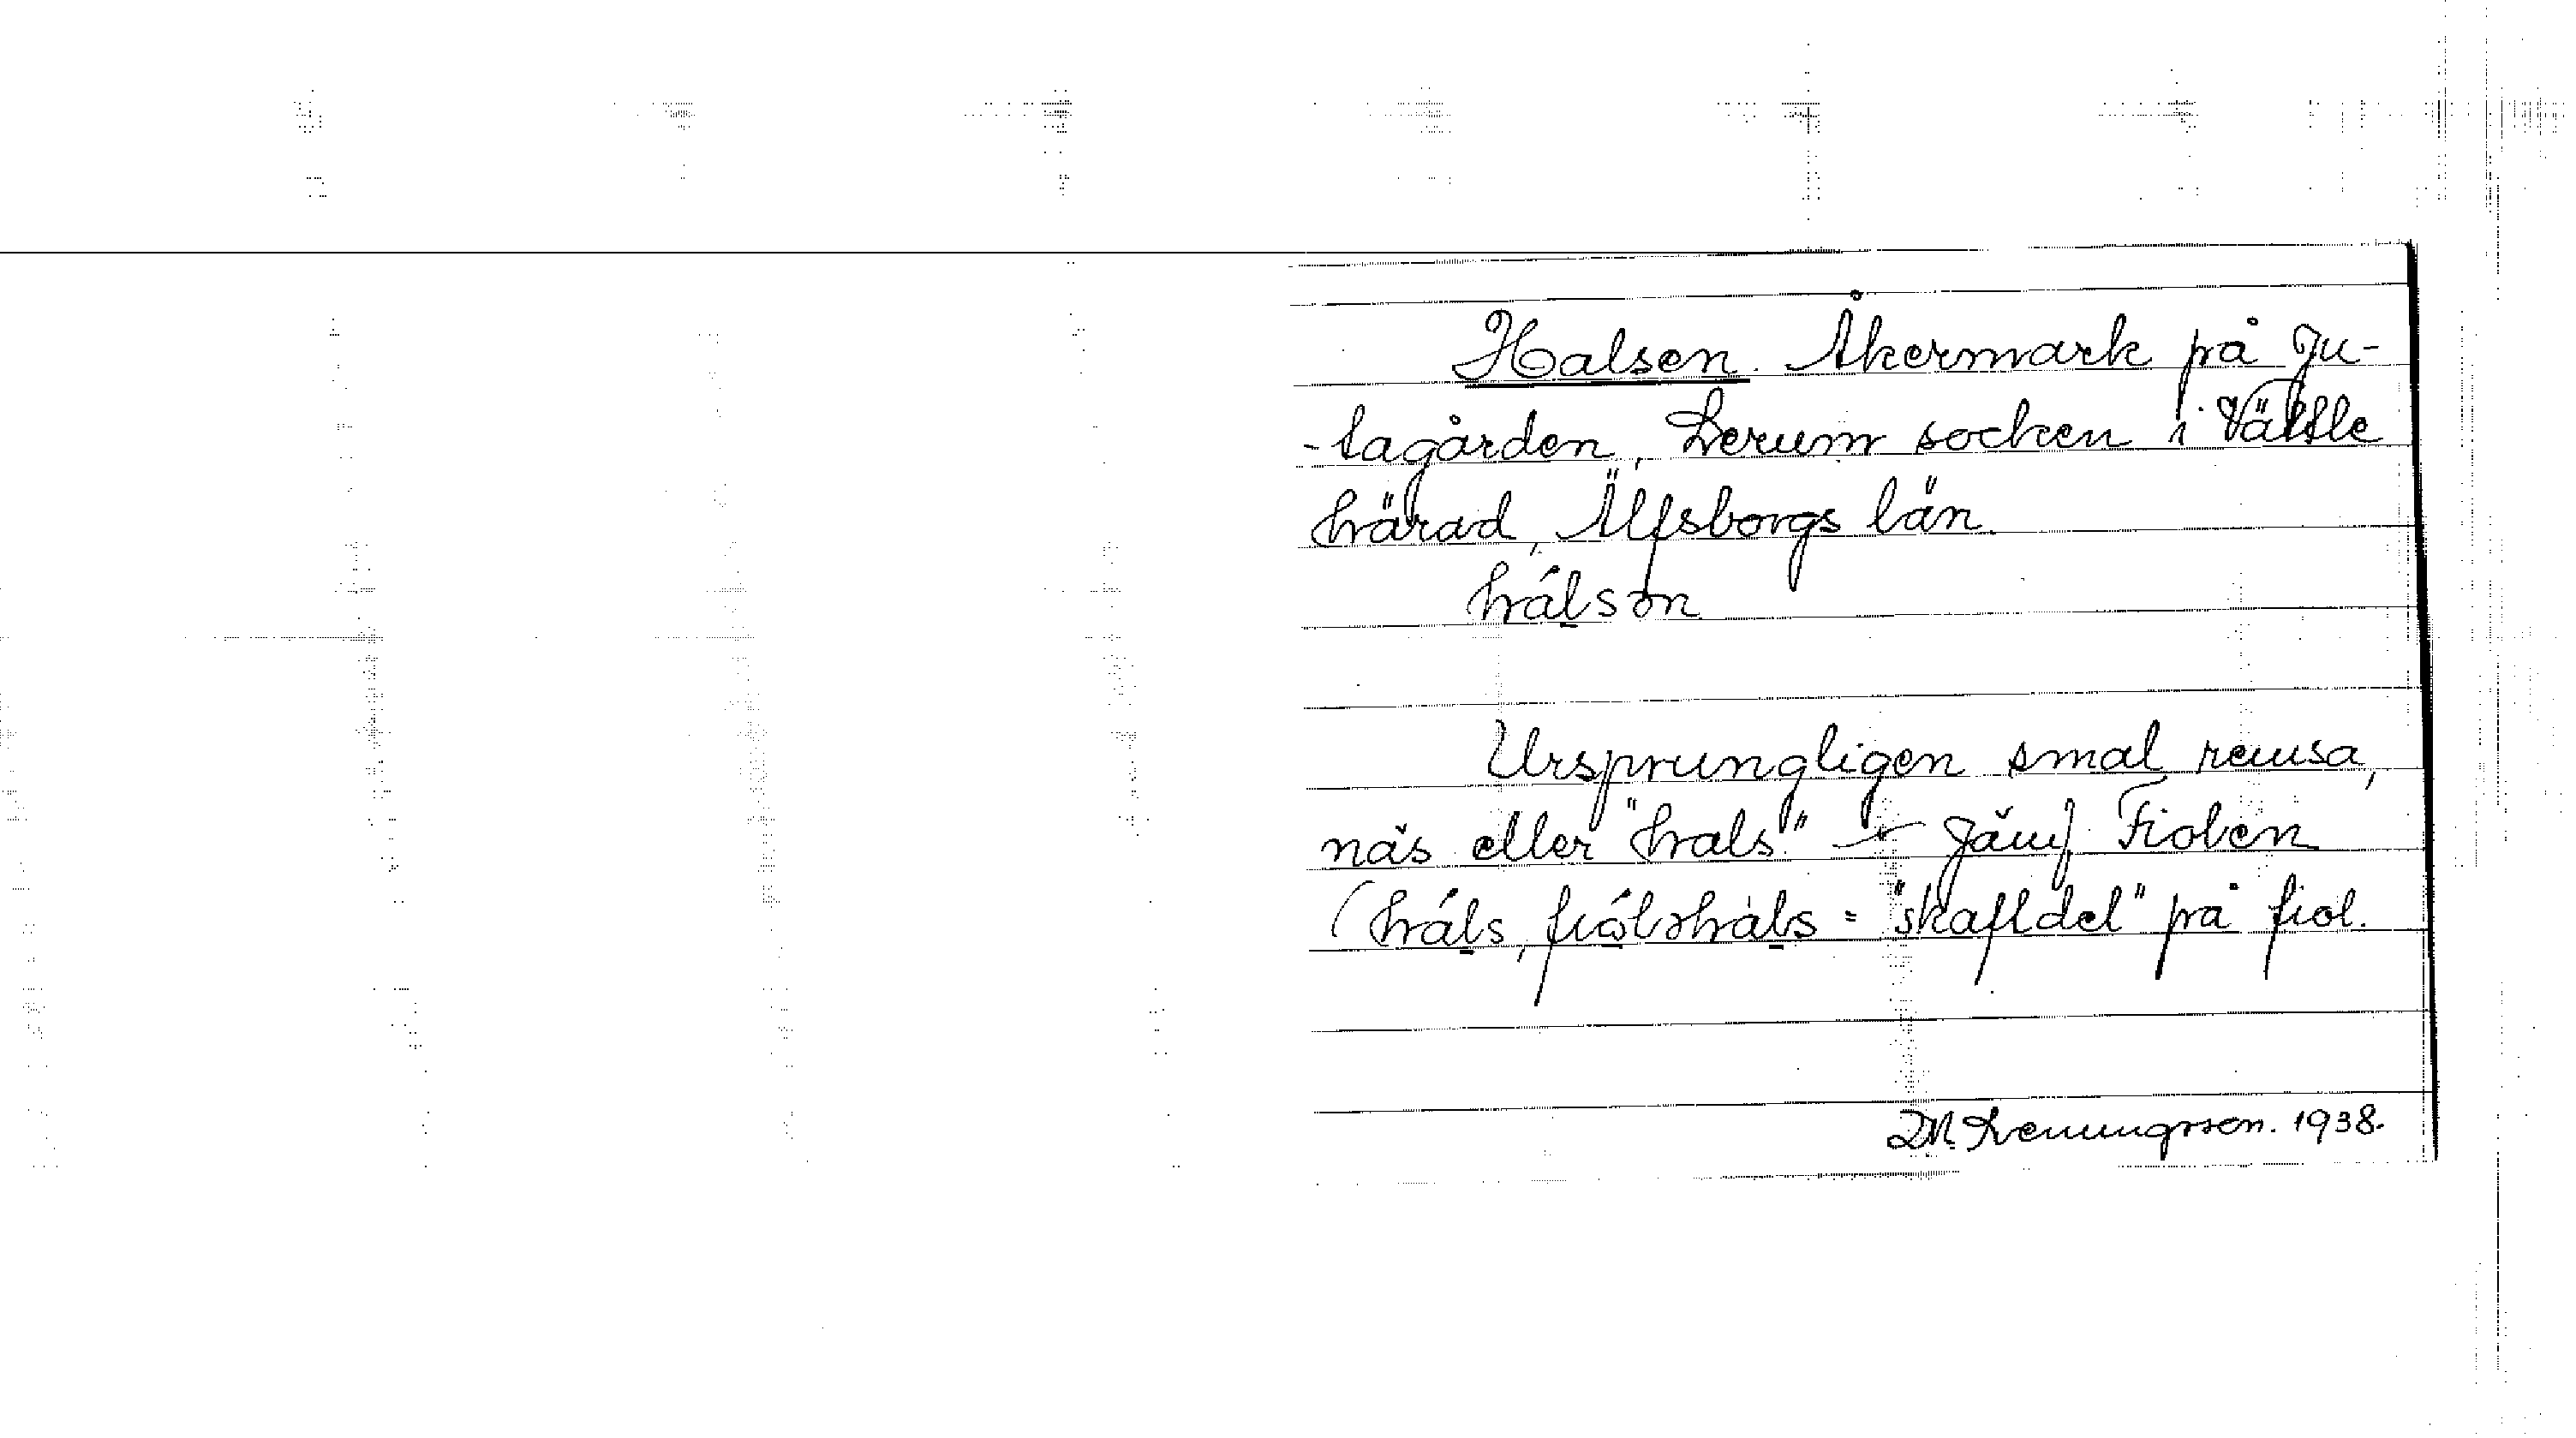 Halsen. Åkermark på Ju-
-tagården, Lerum socken i Vättle
härad, Älfsborgs län.
hálsən
Ursprungligen smal remsa,
näs eller "hals" - Jämf. Fiolen
(háls, fiólshàls = "skaftdel" på fiol.
1938.